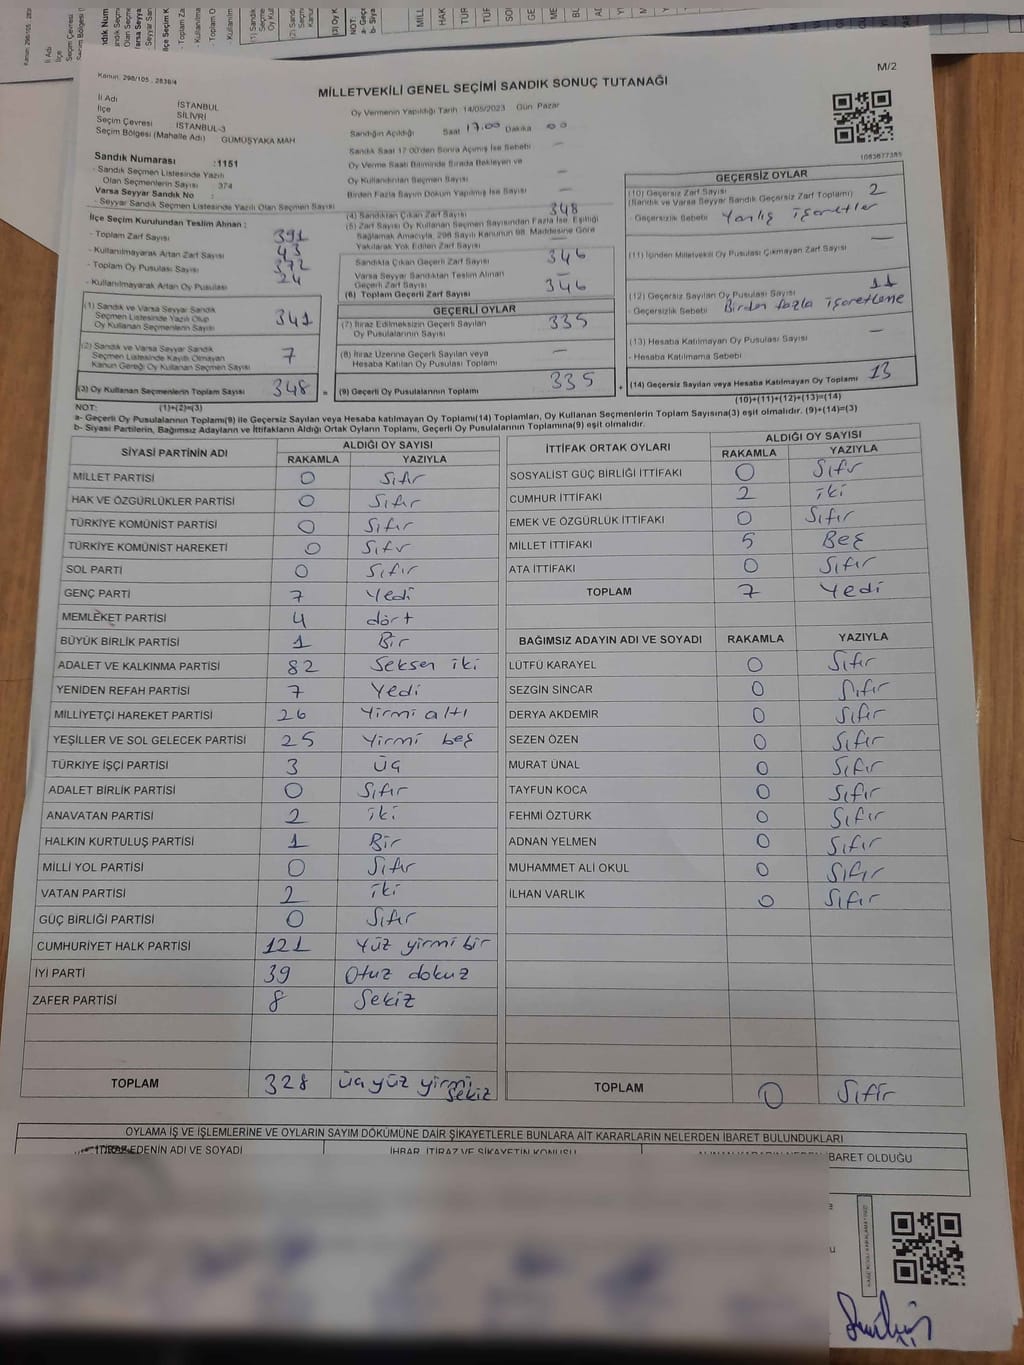 M/2
Kanun: 298/105 ; 2839/4
MİLLETVEKİLİ GENEL SEÇİMİ SANDIK SONUÇ TUTANAĞI
İl Adı İSTANBUL
İlçe SİLİVRİ
Seçim Çevresi İSTANBUL-3
Seçim Bölgesi (Mahalle Adı) GÜMÜŞYAKA MAH
Oy Vermenin Yapıldığı Tarih 14/05/2023 Gün Pazar
Sandığın Açıldığı Saat 17.00 Dakika 00
Sandık Saat 17:00'den Sonra Açılmış İse Sebebi —
Oy Verme Saati Bitiminde Sırada Bekleyen ve
Oy Kullandırılan Seçmen Sayısı —
Birden Fazla Sayım Döküm Yapılmış İse Sayısı —
Sandık Numarası :1151
- Sandık Seçmen Listesinde Yazılı
Olan Seçmenlerin Sayısı 374
Varsa Seyyar Sandık No :
- Seyyar Sandık Seçmen Listesinde Yazılı Olan Seçmen Sayısı
İlçe Seçim Kurulundan Teslim Alınan :
- Toplam Zarf Sayısı 391
- Kullanılmayarak Artan Zarf Sayısı 43
- Toplam Oy Pusulası Sayısı 372
- Kullanılmayarak Artan Oy Pusulası 24
(1) Sandık ve Varsa Seyyar Sandık
Seçmen Listesinde Yazılı Olup
Oy Kullanan Seçmenlerin Sayısı 341
(2) Sandık ve Varsa Seyyar Sandık
Seçmen Listesinde Kayıtlı Olmayan
Kanun Gereği Oy Kullanan Seçmen Sayısı 7
(3) Oy Kullanan Seçmenlerin Toplam Sayısı 348 =
(4) Sandıktan Çıkan Zarf Sayısı 348
(5) Zarf Sayısı Oy Kullanan Seçmen Sayısından Fazla İse, Eşitliği
Sağlamak Amacıyla, 298 Sayılı Kanunun 98. Maddesine Göre
Yakılarak Yok Edilen Zarf Sayısı —
Sandıkta Çıkan Geçerli Zarf Sayısı 346
Varsa Seyyar Sandıktan Teslim Alınan
Geçerli Zarf Sayısı —
(6) Toplam Geçerli Zarf Sayısı 346
GEÇERLİ OYLAR
(7) İtiraz Edilmeksizin Geçerli Sayılan
Oy Pusulalarının Sayısı 335
(8) İtiraz Üzerine Geçerli Sayılan veya
Hesaba Katılan Oy Pusulası Toplamı —
(9) Geçerli Oy Pusulalarının Toplamı 335 +
1083877385
GEÇERSİZ OYLAR
(10) Geçersiz Zarf Sayısı
(Sandık ve Varsa Seyyar Sandık Geçersiz Zarf Toplamı) 2
- Geçersizlik Sebebi Yanlış işaretler
(11) İçinden Milletvekili Oy Pusulası Çıkmayan Zarf Sayısı —
(12) Geçersiz Sayılan Oy Pusulası Sayısı 11
- Geçersizlik Sebebi Birden fazla işaretleme
(13) Hesaba Katılmayan Oy Pusulası Sayısı —
- Hesaba Katılmama Sebebi
(14) Geçersiz Sayılan veya Hesaba Katılmayan Oy Toplamı 13
NOT: (1)+(2)=(3) (10)+(11)+(12)+(13)=(14)
a- Geçerli Oy Pusulalarının Toplamı(9) ile Geçersiz Sayılan veya Hesaba katılmayan Oy Toplamı(14) Toplamları, Oy Kullanan Seçmenlerin Toplam Sayısına(3) eşit olmalıdır. (9)+(14)=(3)
b- Siyasi Partilerin, Bağımsız Adayların ve İttifakların Aldığı Ortak Oyların Toplamı, Geçerli Oy Pusulalarının Toplamına(9) eşit olmalıdır.
SİYASİ PARTİNİN ADI ALDIĞI OY SAYISI
RAKAMLA YAZIYLA
MİLLET PARTİSİ 0 Sıfır
HAK VE ÖZGÜRLÜKLER PARTİSİ 0 Sıfır
TÜRKİYE KOMÜNİST PARTİSİ 0 Sıfır
TÜRKİYE KOMÜNİST HAREKETİ 0 Sıfır
SOL PARTİ 0 Sıfır
GENÇ PARTİ 7 Yedi
MEMLEKET PARTİSİ 4 dört
BÜYÜK BİRLİK PARTİSİ 1 Bir
ADALET VE KALKINMA PARTİSİ 82 Seksen iki
YENİDEN REFAH PARTİSİ 7 Yedi
MİLLİYETÇİ HAREKET PARTİSİ 26 Yirmi altı
YEŞİLLER VE SOL GELECEK PARTİSİ 25 Yirmi beş
TÜRKİYE İŞÇİ PARTİSİ 3 üç
ADALET BİRLİK PARTİSİ 0 Sıfır
ANAVATAN PARTİSİ 2 iki
HALKIN KURTULUŞ PARTİSİ 1 Bir
MİLLİ YOL PARTİSİ 0 Sıfır
VATAN PARTİSİ 2 iki
GÜÇ BİRLİĞİ PARTİSİ 0 Sıfır
CUMHURİYET HALK PARTİSİ 121 Yüz yirmi bir
İYİ PARTİ 39 Otuz dokuz
ZAFER PARTİSİ 8 Sekiz
TOPLAM 328 üç yüz yirmi sekiz
İTTİFAK ORTAK OYLARI ALDIĞI OY SAYISI
RAKAMLA YAZIYLA
SOSYALİST GÜÇ BİRLİĞİ İTTİFAKI 0 Sıfır
CUMHUR İTTİFAKI 2 iki
EMEK VE ÖZGÜRLÜK İTTİFAKI 0 Sıfır
MİLLET İTTİFAKI 5 Beş
ATA İTTİFAKI 0 Sıfır
TOPLAM 7 Yedi
BAĞIMSIZ ADAYIN ADI VE SOYADI RAKAMLA YAZIYLA
LÜTFÜ KARAYEL 0 Sıfır
SEZGİN SİNCAR 0 Sıfır
DERYA AKDEMİR 0 Sıfır
SEZEN ÖZEN 0 Sıfır
MURAT ÜNAL 0 Sıfır
TAYFUN KOCA 0 Sıfır
FEHMİ ÖZTÜRK 0 Sıfır
ADNAN YELMEN 0 Sıfır
MUHAMMET ALİ OKUL 0 Sıfır
İLHAN VARLIK 0 Sıfır
TOPLAM 0 Sıfır
OYLAMA İŞ VE İŞLEMLERİNE VE OYLARIN SAYIM DÖKÜMÜNE DAİR ŞİKAYETLERLE BUNLARA AİT KARARLARIN NELERDEN İBARET BULUNDUKLARI
EDENİN ADI VE SOYADI İHBAR, İTİRAZ VE ŞİKAYETİN KONUSU BARET OLDUĞU